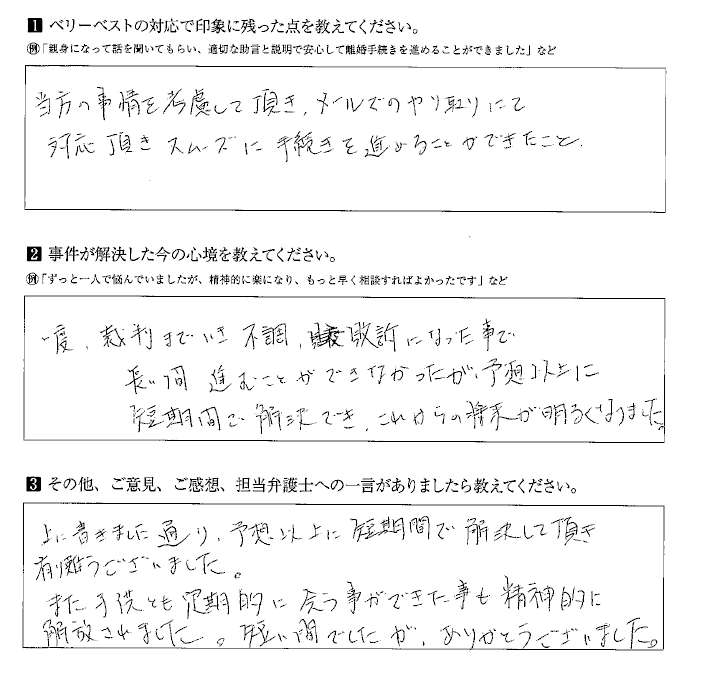 1 ベリーベストの対応で印象に残った点を教えてください。
例「親身になって話を聞いてもらい、適切な助言と説明で安心して離婚手続きを進めることができました」など
当方の事情を考慮して頂き、メールでのやり取りにて
対応頂きスムーズに手続きを進めることができたこと.
2 事件が解決した今の心境を教えてください。
例「ずっと一人で悩んでいましたが、精神的に楽になり、もっと早く相談すればよかったです」など
一度、裁判までいき不調、敗訴になった事で
長い間進むことができなかったが、予想以上に
短期間で解決でき、これからの将来が明るくなりました。
3 その他、ご意見、ご感想、担当弁護士への一言がありましたら教えてください。
上に書きました通り、予想以上に短期間で解決して頂き
有難うございました。
また子供とも定期的に会う事ができた事も精神的に
解放されました。短い間でしたが、ありがとうございました。